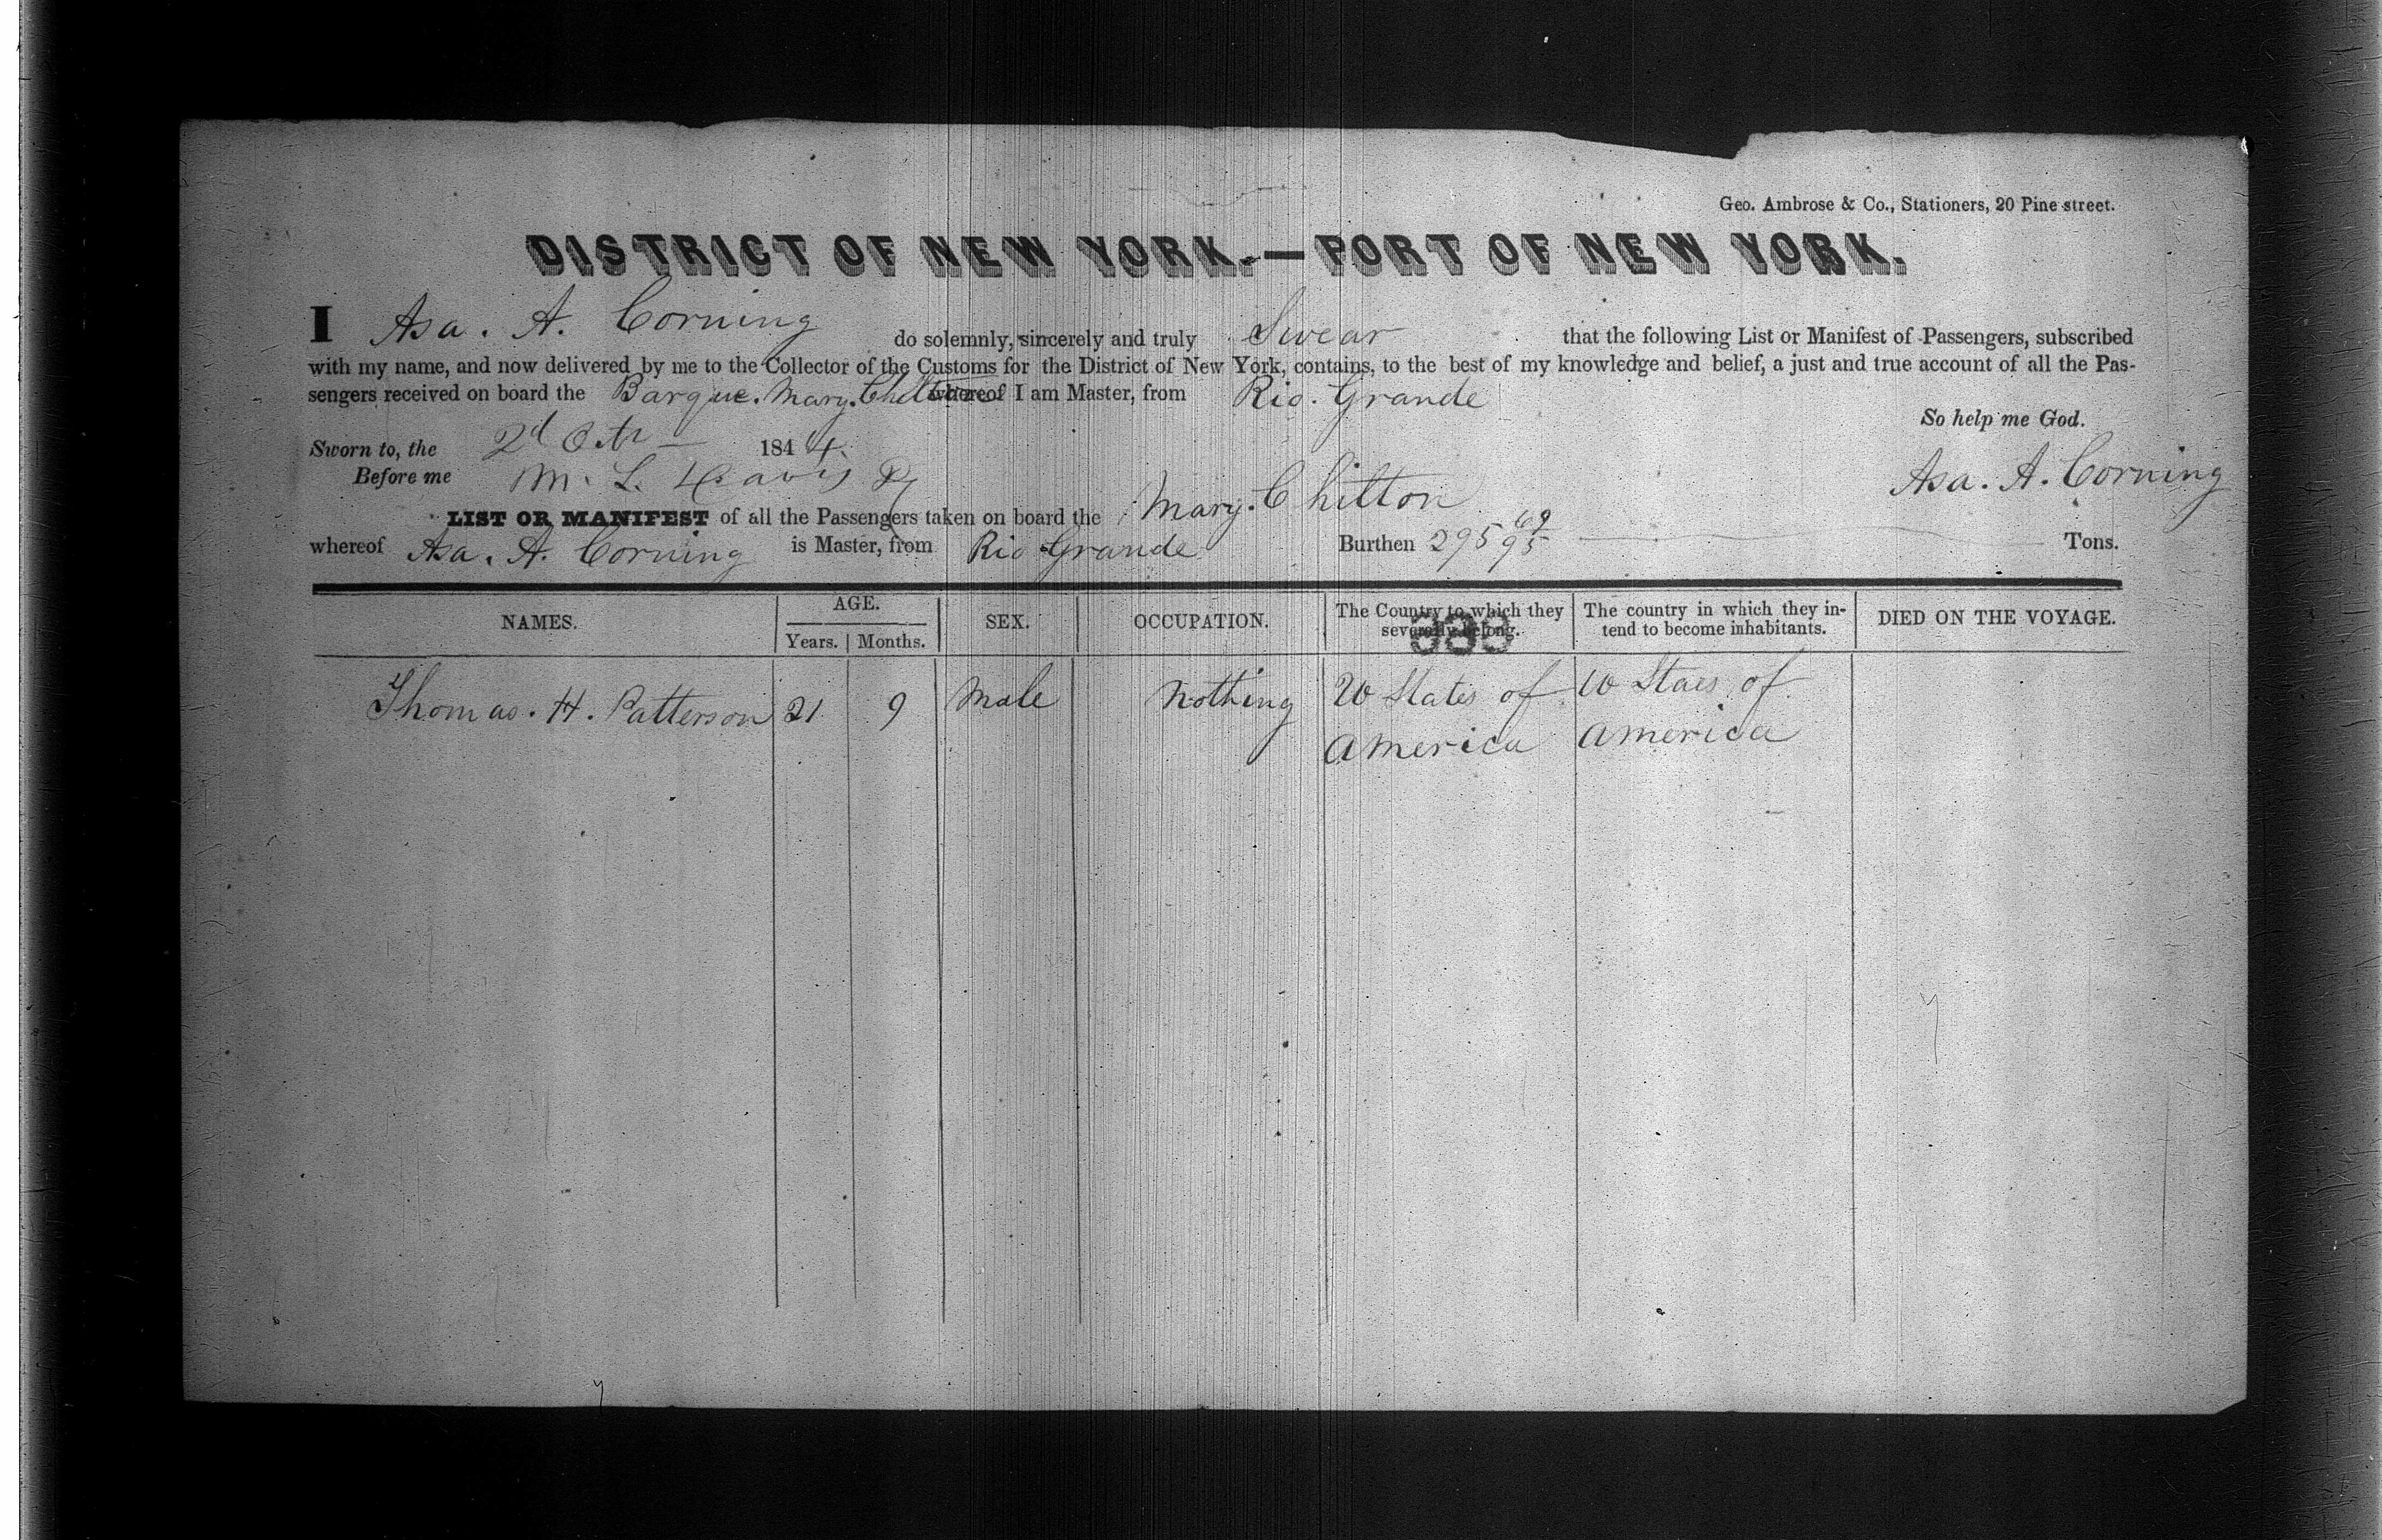 Geo. Ambrose & Co., Stationers, 20 Pine street.
DISTRICT OF NEW YORK.—PORT OF NEW YORK.
I Asa. A. Corning do solemnly, sincerely and truly Swear that the following List or Manifest of Passengers, subscribed
with my name, and now delivered by me to the Collector of the Customs for the District of New York, contains, to the best of my knowledge and belief, a just and true account of all the Pas-
sengers received on board the Barque. Mary. Chilton whereof I am Master, from Rio. Grande
So help me God.
Sworn to, the 2d Octr 1844.
Before me M. L. Davis
Asa. A. Corning
LIST OR MANIFEST of all the Passengers taken on board the Mary. Chilton
whereof Asa. A. Corning is Master, from Rio Grande Burthen 295 69/95 Tons.
NAMES. AGE. SEX. OCCUPATION. The Country to which they severally belong. The country in which they in-tend to become inhabitants. DIED ON THE VOYAGE.
Years. Months.
Thomas. H. Patterson 21 9 Male Nothing U States of America U Staes of America